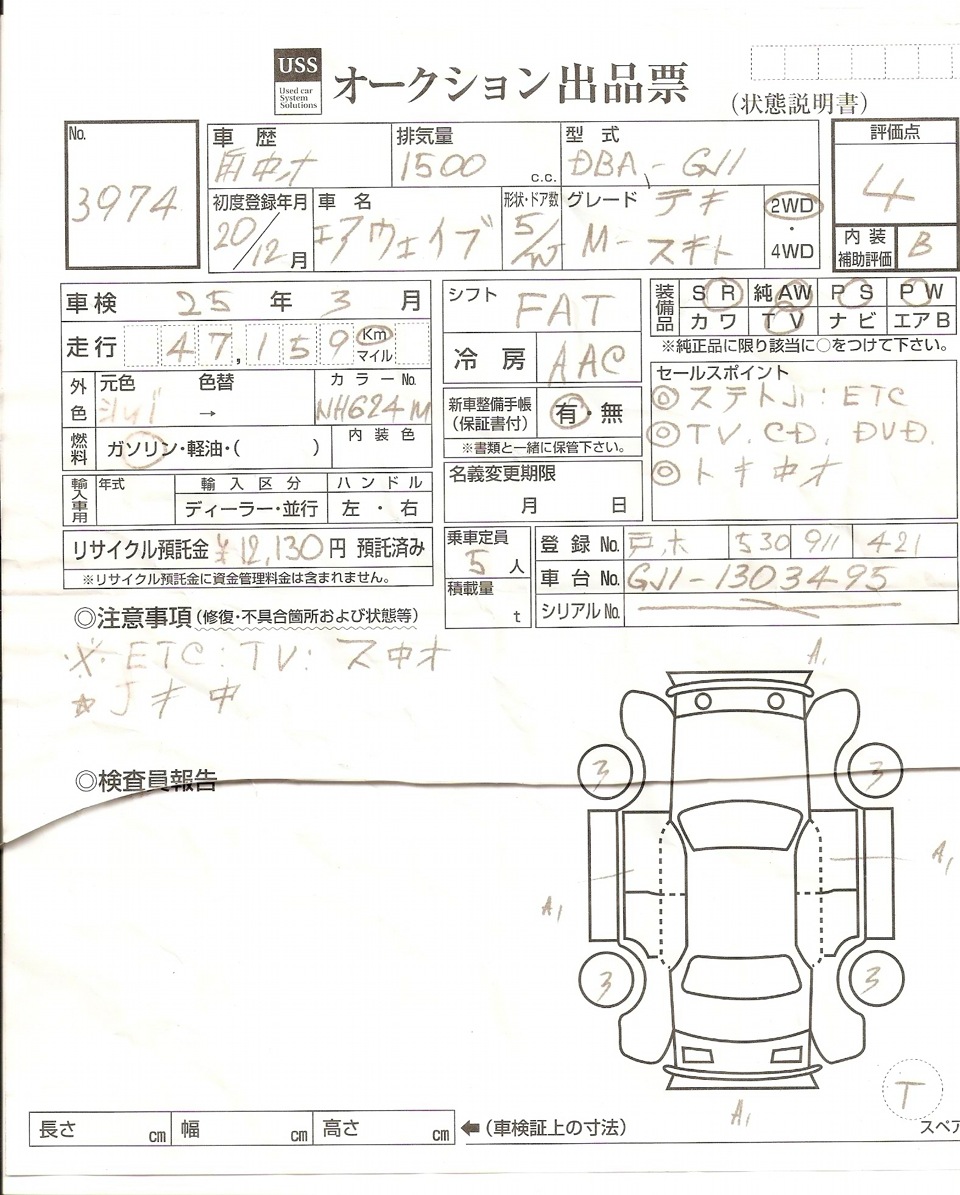 USS
Used car
System
Solutions
オークション出品票
(状態説明書)
No.
3974
車歴
排気量
1500 c.c.
型式
DBA-GJ1
評価点
4
初度登録年月
20/12月
車名
エアウェイブ
形状・ドア数
5/W
グレード
M-
2WD
・
4WD
内装
補助評価
B
車検 25年3月
走行 47,159 Km
マイル
外色
元色 色替
→
カラーNo.
NH624M
燃料
ガソリン・軽油・( )
内装色
輸入車用
年式
輸入区分
ハンドル
ディーラー・並行
左・右
リサイクル預託金 ¥12,130円 預託済み
※リサイクル預託金に資金管理料金は含まれません。
シフト FAT
冷房 AAC
新車整備手帳
(保証書付)
有・無
※書類と一緒に保管下さい。
名義変更期限
月 日
乗車定員
5人
積載量
t
装備品
SR 純AW PS PW
カワ TV ナビ エアB
※純正品に限り該当に○をつけて下さい。
セールスポイント
◎ ETC
◎TV.CD.DVD.
◎
登録No. 530 911 421
車台No. GJ1-1303495
シリアルNo.
◎注意事項(修復・不具合箇所および状態等)
※ETC:TV:
◎検査員報告
A1
3
3
A1
A1
3
3
A1
T
長さ cm 幅 cm 高さ cm
←(車検証上の寸法)
スペア